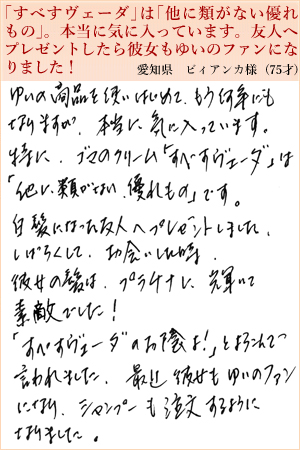 「すべすヴェーダ」は「他に類がない優れ
もの」。本当に気に入っています。友人へ
プレゼントしたら彼女もゆいのファンにな
りました！
愛知県　ビィアンカ様（75才）
ゆいの商品を使いはじめて、もう何年にも
なりますが、本当に気に入っています。
特に、ゴマのクリーム「すべすヴェーダ」は
「他に類がない、優れもの」です。
白髪になった友人へプレゼントしました。
しばらくして、お会いした時、
彼女の髪は、プラチナに、輝いて
素敵でした！
「すべすヴェーダのお陰よ！」とよろこんで
言われました。最近彼女もゆいのファン
になり、シャンプーも注文するように
なりました。